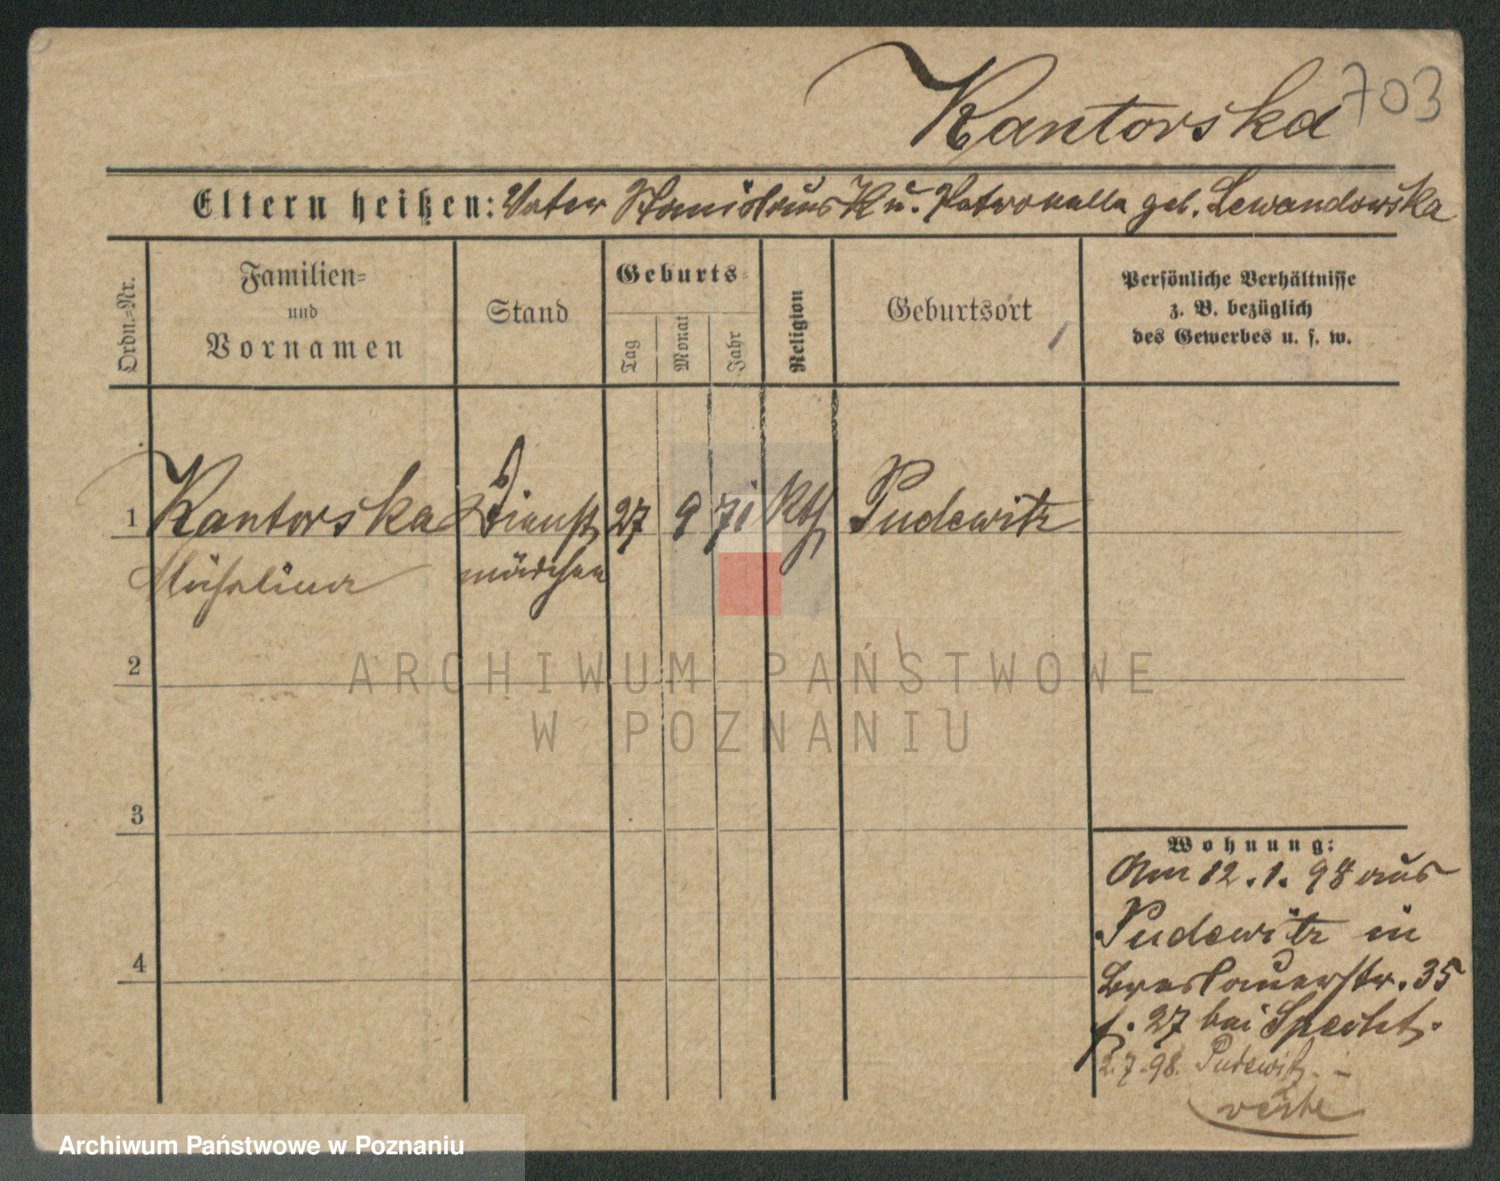 Kantorska 703
Eltern heißen: Vater Stanislaus K u. Petronella geb. Lewandowska
Ordn.-Nr.
Familien-
und
Vornamen
Stand
Geburts-
Tag
Monat
Jahr
Religion
Geburtsort
Persönliche Verhältnisse
z. B. bezüglich
des Gewerbes u. s. w.
1 Kantorska Dienst 27 9 71 kth Pudewitz
mädchen
2
ARCHIWUM PAŃSTWOWE
W POZNANIU
3
Wohnung:
Am 12. 1. 98 aus
Pudewitz in
4
Breslauerstr. 35
27 bei Specht.
2.7.98. Pudewitz. –
Archiwum Państwowe w Poznaniu